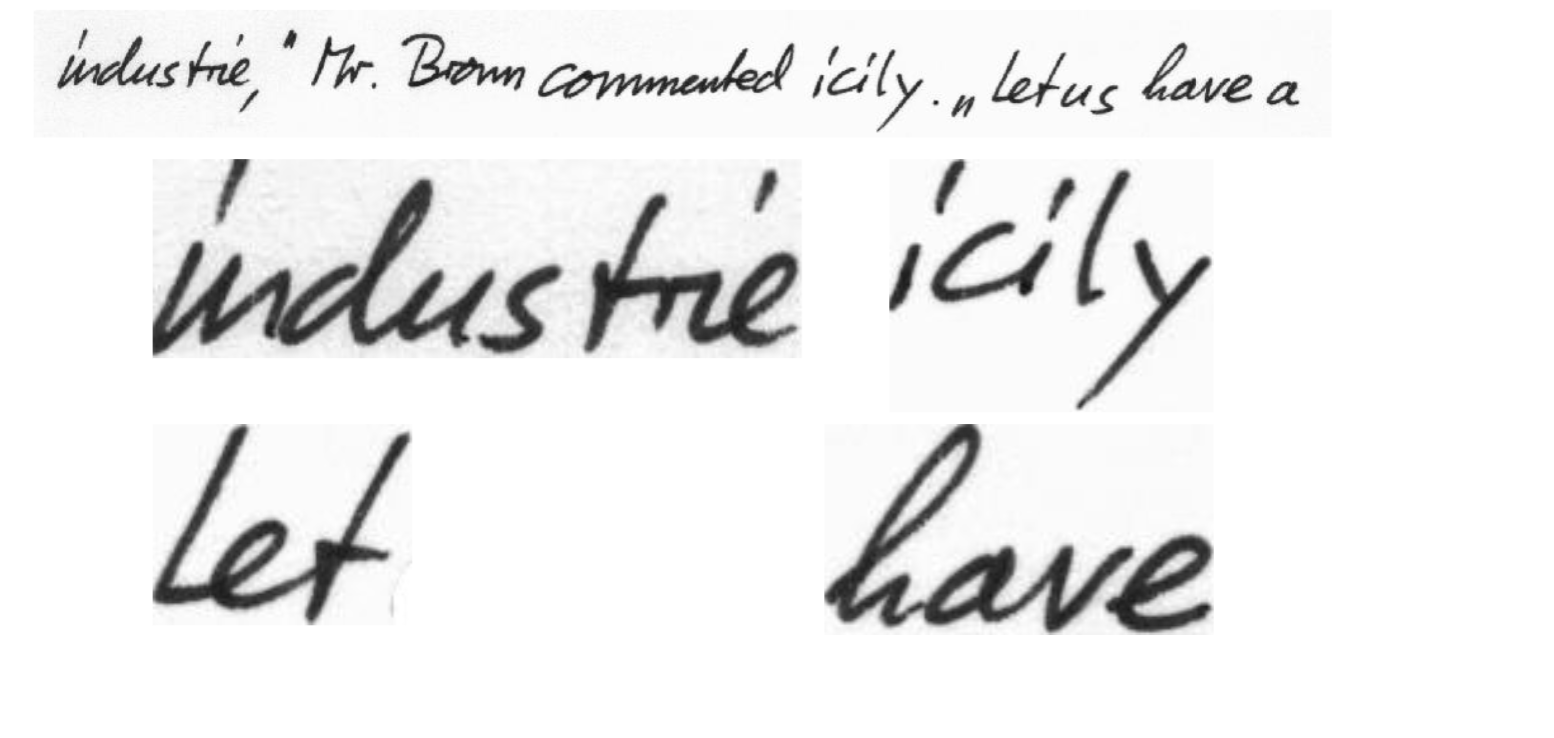 industrie," Mr. Brown commented icily. „Let us have a
industrie icily
Let have